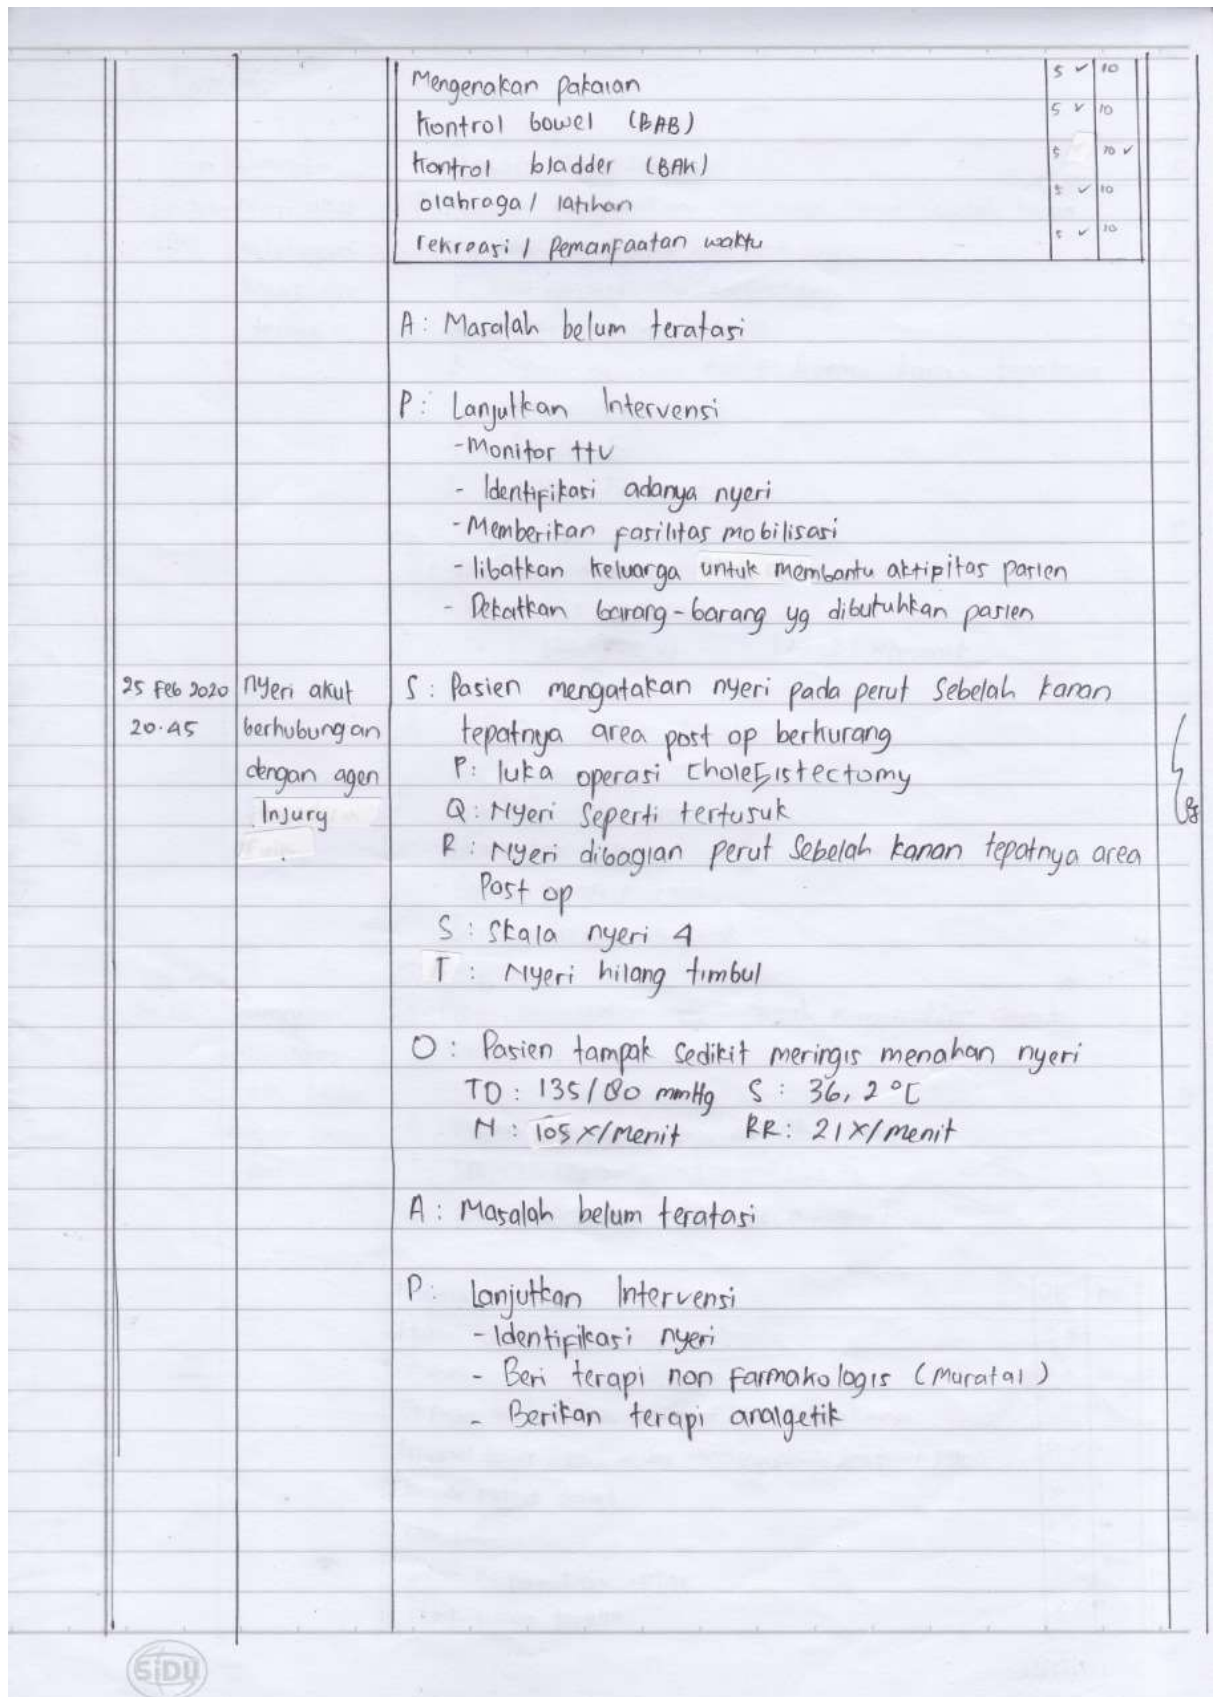 Mengenakan Pakaian 5 ✓ 10
Kontrol bowel (BAB) 5 ✓ 10
Kontrol bladder (BAK) 5 10 ✓
olahraga / latihan 5 ✓ 10
rekreasi / Pemanfaatan waktu 5 ✓ 10
A : Masalah belum teratasi
P : Lanjutkan Intervensi
- Monitor ttv
- Identifikasi adanya nyeri
- Memberikan fasilitas mobilisasi
- libatkan keluarga untuk membantu aktipitas pasien
- Dekatkan barang-barang yg dibutuhkan pasien
25 Feb 2020 nyeri akut S : Pasien mengatakan nyeri pada perut Sebelah kanan
20.45 berhubungan tepatnya area post op berkurang
dengan agen P : luka operasi Cholesistectomy
Injury Q : Nyeri Seperti tertusuk
R : Nyeri dibagian perut Sebelah kanan tepatnya area
Post op
S : Skala nyeri 4
T : Nyeri hilang timbul
O : Pasien tampak sedikit meringis menahan nyeri
TD : 135/80 mmHg S : 36,2 °C
N : 105 x/menit RR : 21x/menit
A : Masalah belum teratasi
P : Lanjutkan Intervensi
- Identifikasi nyeri
- Beri terapi non farmakologis (Muratal)
- Berikan terapi analgetik
SiDU